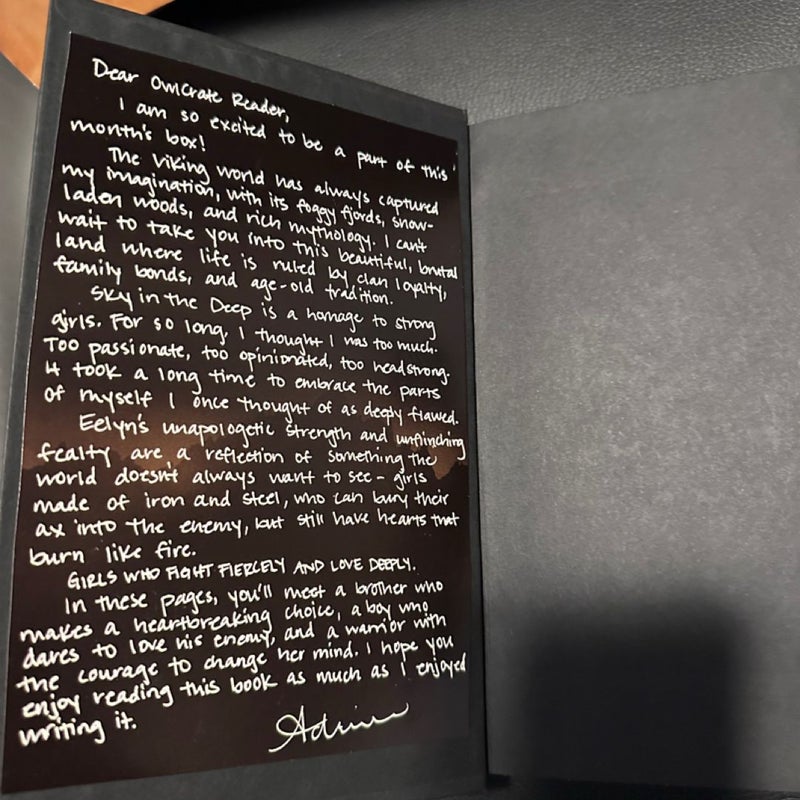 Dear OwlCrate Reader,
I am so excited to be a part of this
month's box!
The Viking world has always captured
my imagination, with its foggy fjords, snow-
laden woods, and rich mythology. I can't
wait to take you into this beautiful, brutal
land where life is ruled by clan loyalty,
family bonds, and age-old tradition.
Sky in the Deep is a homage to strong
girls. For so long, I thought I was too much.
Too passionate, too opinionated, too headstrong.
It took a long time to embrace the parts
of myself I once thought of as deeply flawed.
Eelyn's unapologetic strength and unflinching
fealty are a reflection of something the
world doesn't always want to see - girls
made of iron and steel, who can bury their
ax into the enemy, but still have hearts that
burn like fire.
GIRLS WHO FIGHT FIERCELY AND LOVE DEEPLY.
In these pages, you'll meet a brother who
makes a heartbreaking choice, a boy who
dares to love his enemy, and a warrior with
the courage to change her mind. I hope you
enjoy reading this book as much as I enjoyed
writing it.